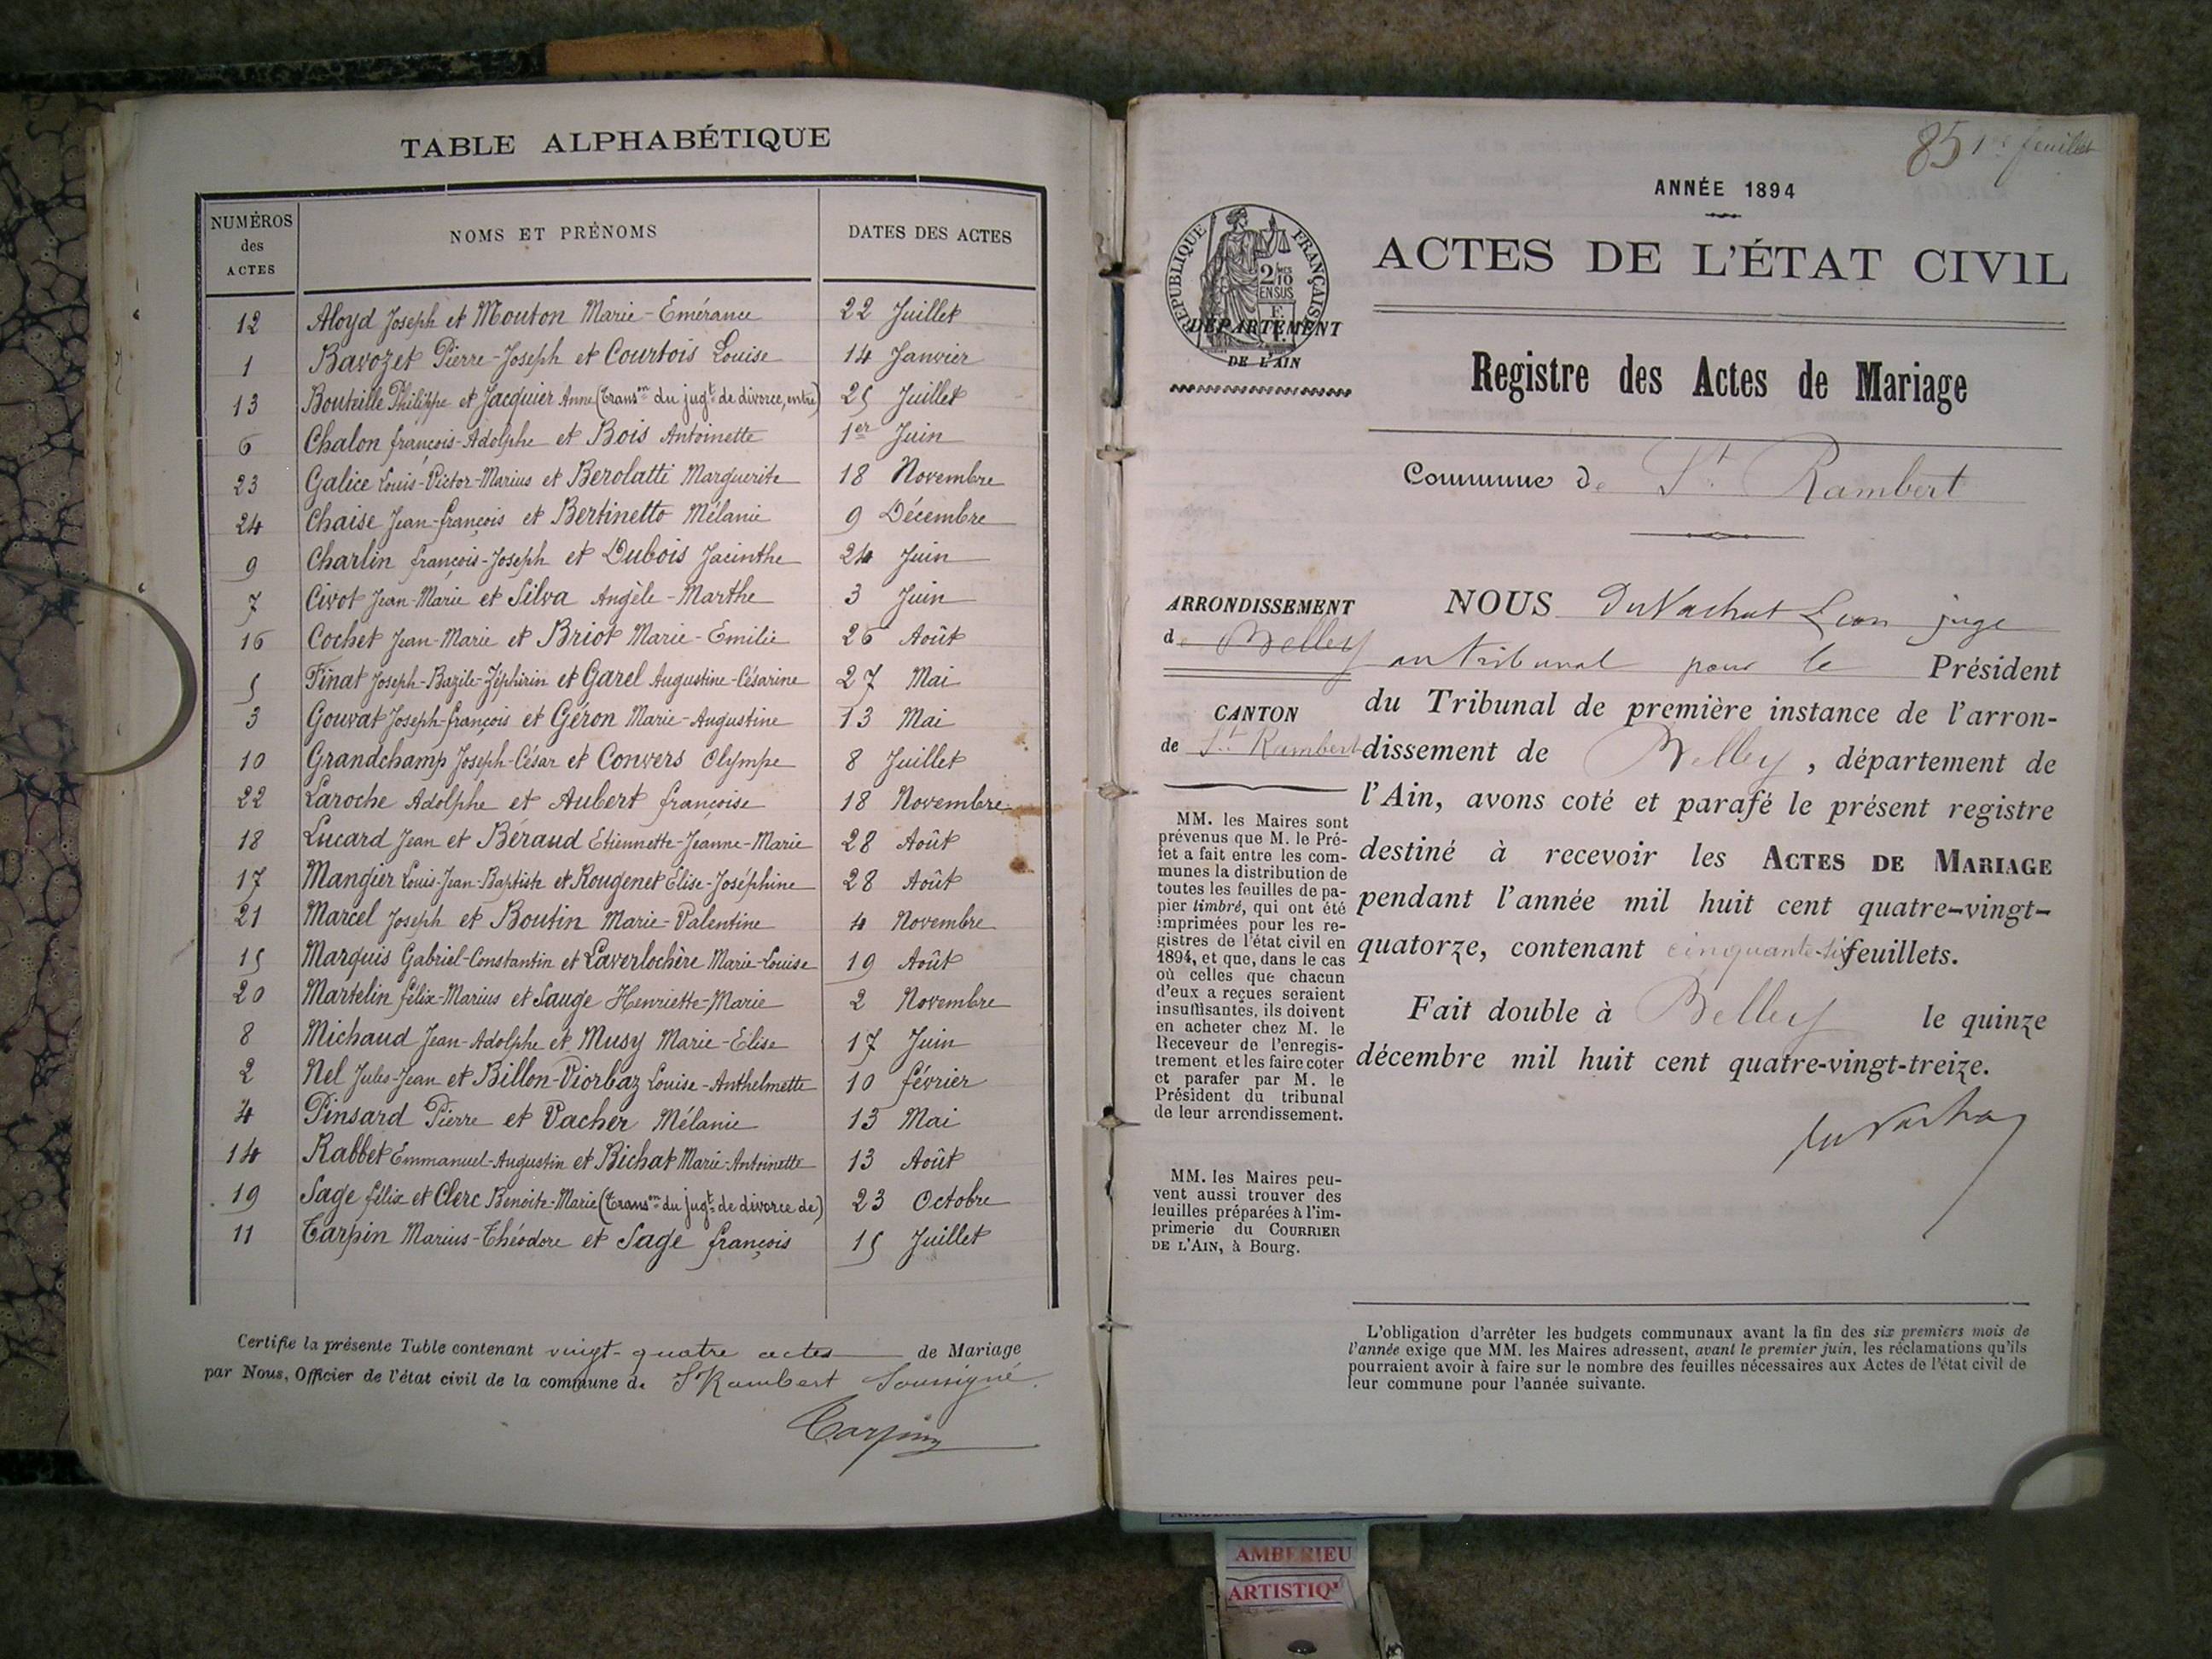 TABLE ALPHABÉTIQUE
NUMÉROS des ACTES NOMS ET PRÉNOMS DATES DES ACTES
12 Aloyd Joseph et Mouton Marie-Emérance 22 Juillet
1 Bavozet Pierre-Joseph et Courtois Louise 14 Janvier
13 Bouteille Philippe et Jacquier Anne (Transon du jugt de divorce, entre) 25 Juillet
6 Chalon françois-Adolphe et Bois Antoinette 1er Juin
23 Galice Louis-Victor-Marius et Berolatti Marguerite 18 Novembre
24 Chaise Jean-françois et Bertinetto Mélanie 9 Décembre
9 Charlin françois-Joseph et Dubois Jacinthe 24 Juin
7 Civot Jean-Marie et Silva Angèle-Marthe 3 Juin
16 Cochet Jean-Marie et Briot Marie-Emilie 26 Août
5 Finat Joseph-Bazile-Zéphirin et Garel Augustine-Césarine 27 Mai
3 Gouvat Joseph-françois et Géron Marie-Augustine 13 Mai
10 Grandchamp Joseph-César et Convers Olympe 8 Juillet
22 Laroche Adolphe et Aubert françoise 18 Novembre
18 Lucard Jean et Béraud Etiennette-Jeanne-Marie 28 Août
17 Mangier Louis-Jean-Baptiste et Rougenet Elise-Joséphine 28 Août
21 Marcel Joseph et Boutin Marie-Valentine 4 Novembre
15 Marquis Gabriel-Constantin et Laverlochère Marie-Louise 19 Août
20 Martelin félix-Marius et Sauge Henriette-Marie 2 Novembre
8 Michaud Jean-Adolphe et Musy Marie-Elise 17 Juin
2 Nel Jules-Jean et Billon-Viorbaz Louise-Anthelmette 10 février
4 Pinsard Pierre et Vacher Mélanie 13 Mai
14 Rabbet Emmanuel-Augustin et Bichat Marie-Antoinette 13 Août
19 Sage félix et Clerc Benoite-Marie (Transon du jugt de divorce de) 23 Octobre
11 Tarpin Marius-Théodore et Sage françois 15 Juillet
Certifie la présente Table contenant vingt-quatre actes de Mariage
par Nous, Officier de l'état civil de la commune de St Rambert Soussigné.
Tarpin
85 1er feuillet
ANNÉE 1894
ACTES DE L'ÉTAT CIVIL
RÉPUBLIQUE FRANÇAISE
2/10MES
EN SUS
DÉPARTEMENT
DE L'AIN
Registre des Actes de Mariage
Commune de St Rambert
ARRONDISSEMENT
de Belley
CANTON
de St Rambert
MM. les Maires sont
prévenus que M. le Pré-
fet a fait entre les com-
munes la distribution de
toutes les feuilles de pa-
pier timbré, qui ont été
imprimées pour les re-
gistres de l'état civil en
1894, et que, dans le cas
où celles que chacun
d'eux a reçues seraient
insuffisantes, ils doivent
en acheter chez M. le
Receveur de l'enregis-
trement et les faire coter
et parafer par M. le
Président du tribunal
de leur arrondissement.
MM. les Maires peu-
vent aussi trouver des
feuilles préparées à l'im-
primerie du COURRIER
DE L'AIN, à Bourg.
NOUS DuVachat Léon juge
au tribunal pour le Président
du Tribunal de première instance de l'arron-
dissement de Belley, département de
l'Ain, avons coté et parafé le présent registre
destiné à recevoir les ACTES DE MARIAGE
pendant l'année mil huit cent quatre-vingt-
quatorze, contenant cinquante-six feuillets.
Fait double à Belley le quinze
décembre mil huit cent quatre-vingt-treize.
DuVachat
L'obligation d'arrêter les budgets communaux avant la fin des six premiers mois de
l'année exige que MM. les Maires adressent, avant le premier juin, les réclamations qu'ils
pourraient avoir à faire sur le nombre des feuilles nécessaires aux Actes de l'état civil de
leur commune pour l'année suivante.
AMBERIEU
ARTISTIQ